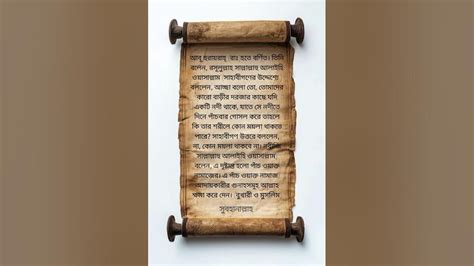 আবু হুরায়রাহ্ (রাঃ) হতে বর্ণিত। তিনি
বলেন, রসূলুল্লাহ সাল্লাল্লাহু আলাইহি
ওয়াসাল্লাম সাহাবীগণের উদ্দেশ্যে
বললেন, আচ্ছা বলো তো, তোমাদের
কারো বাড়ীর দরজার কাছে যদি
একটি নদী থাকে, যাতে সে নদীতে
দিনে পাঁচবার গোসল করে তাহলে
কি তার শরীলে কোন ময়লা থাকতে
পারে? সাহাবীগণ উত্তরে বললেন,
না, কোন ময়লা থাকবে না। নবীজী
সাল্লাল্লাহু আলাইহি ওয়াসাল্লাম
বলেন, এ দৃষ্টান্ত হলো পাঁচ ওয়াক্ত
নামাজের। এ পাঁচ ওয়াক্ত নামাজ
আদায়কারীর গুনাহসমূহ আল্লাহ
ক্ষমা করে দেন। বুখারী ও মুসলিম
সুবহানাল্লাহ